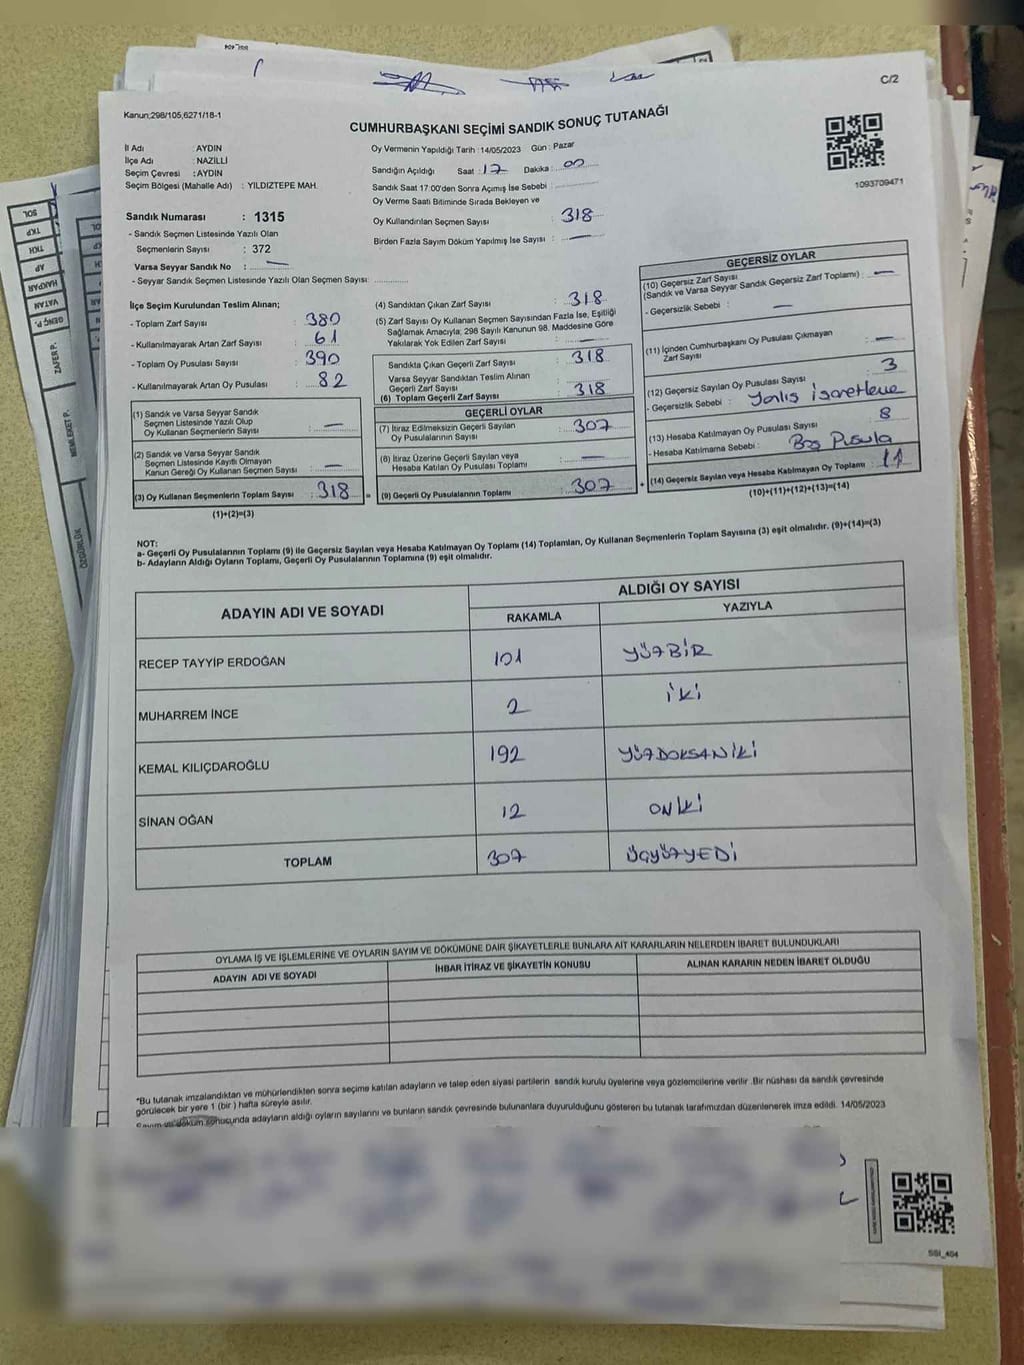 C/2
Kanun;298/105,6271/18-1
CUMHURBAŞKANI SEÇİMİ SANDIK SONUÇ TUTANAĞI
1093709471
İl Adı : AYDIN
İlçe Adı : NAZİLLİ
Seçim Çevresi : AYDIN
Seçim Bölgesi (Mahalle Adı) : YILDIZTEPE MAH.
Sandık Numarası : 1315
- Sandık Seçmen Listesinde Yazılı Olan
Seçmenlerin Sayısı : 372
Varsa Seyyar Sandık No : —
- Seyyar Sandık Seçmen Listesinde Yazılı Olan Seçmen Sayısı:
Oy Vermenin Yapıldığı Tarih :14/05/2023 Gün : Pazar
Sandığın Açıldığı Saat : 17 Dakika : 00
Sandık Saat 17:00'den Sonra Açımış İse Sebebi :
Oy Verme Saati Bitiminde Sırada Bekleyen ve
Oy Kullandırılan Seçmen Sayısı : 318
Birden Fazla Sayım Döküm Yapılmış İse Sayısı : —
İlçe Seçim Kurulundan Teslim Alınan;
- Toplam Zarf Sayısı : 380
- Kullanılmayarak Artan Zarf Sayısı : 61
- Toplam Oy Pusulası Sayısı : 390
- Kullanılmayarak Artan Oy Pusulası : 82
(1) Sandık ve Varsa Seyyar Sandık
Seçmen Listesinde Yazılı Olup
Oy Kullanan Seçmenlerin Sayısı : —
(2) Sandık ve Varsa Seyyar Sandık
Seçmen Listesinde Kayıtlı Olmayan
Kanun Gereği Oy Kullanan Seçmen Sayısı : —
(3) Oy Kullanan Seçmenlerin Toplam Sayısı : 318 =
(1)+(2)=(3)
(4) Sandıktan Çıkan Zarf Sayısı : 318
(5) Zarf Sayısı Oy Kullanan Seçmen Sayısından Fazla İse, Eşitliği
Sağlamak Amacıyla; 298 Sayılı Kanunun 98. Maddesine Göre
Yakılarak Yok Edilen Zarf Sayısı : —
Sandıkta Çıkan Geçerli Zarf Sayısı : 318
Varsa Seyyar Sandıktan Teslim Alınan
Geçerli Zarf Sayısı
(6) Toplam Geçerli Zarf Sayısı : 318
GEÇERLİ OYLAR
(7) İtiraz Edilmeksizin Geçerli Sayılan
Oy Pusulalarının Sayısı : 307
(8) İtiraz Üzerine Geçerli Sayılan veya
Hesaba Katılan Oy Pusulası Toplamı : —
(9) Geçerli Oy Pusulalarının Toplamı : 307 +
GEÇERSİZ OYLAR
(10) Geçersiz Zarf Sayısı
(Sandık ve Varsa Seyyar Sandık Geçersiz Zarf Toplamı) : —
- Geçersizlik Sebebi : —
(11) İçinden Cumhurbaşkanı Oy Pusulası Çıkmayan
Zarf Sayısı : —
(12) Geçersiz Sayılan Oy Pusulası Sayısı : 3
- Geçersizlik Sebebi : Yanlış İşaretleme
(13) Hesaba Katılmayan Oy Pusulası Sayısı : 8
- Hesaba Katılmama Sebebi : Boş Pusula
(14) Geçersiz Sayılan veya Hesaba Katılmayan Oy Toplamı : 11
(10)+(11)+(12)+(13)=(14)
NOT:
a- Geçerli Oy Pusulalarının Toplamı (9) ile Geçersiz Sayılan veya Hesaba Katılmayan Oy Toplamı (14) Toplamları, Oy Kullanan Seçmenlerin Toplam Sayısına (3) eşit olmalıdır. (9)+(14)=(3)
b- Adayların Aldığı Oyların Toplamı, Geçerli Oy Pusulalarının Toplamına (9) eşit olmalıdır.
ADAYIN ADI VE SOYADI
ALDIĞI OY SAYISI
RAKAMLA YAZIYLA
RECEP TAYYİP ERDOĞAN 101 YÜZBİR
MUHARREM İNCE 2 İKİ
KEMAL KILIÇDAROĞLU 192 YÜZDOKSANİKİ
SİNAN OĞAN 12 ONİKİ
TOPLAM 307 ÜÇYÜZYEDİ
OYLAMA İŞ VE İŞLEMLERİNE VE OYLARIN SAYIM VE DÖKÜMÜNE DAİR ŞİKAYETLERLE BUNLARA AİT KARARLARIN NELERDEN İBARET BULUNDUKLARI
ADAYIN ADI VE SOYADI İHBAR İTİRAZ VE ŞİKAYETİN KONUSU ALINAN KARARIN NEDEN İBARET OLDUĞU
*Bu tutanak imzalandıktan ve mühürlendikten sonra seçime katılan adayların ve talep eden siyasi partilerin sandık kurulu üyelerine veya gözlemcilerine verilir .Bir nüshası da sandık çevresinde
görülecek bir yere 1 (bir ) hafta süreyle asılır.
Sayım ve döküm sonucunda adayların aldığı oyların sayılarını ve bunların sandık çevresinde bulunanlara duyurulduğunu gösteren bu tutanak tarafımızdan düzenlenerek imza edildi. 14/05/2023
SSI_404
SOL
TKP
TKH
AP
HAKPAR
VATAN
GENÇ P.
ZAFER P.
MEMLEKET P.